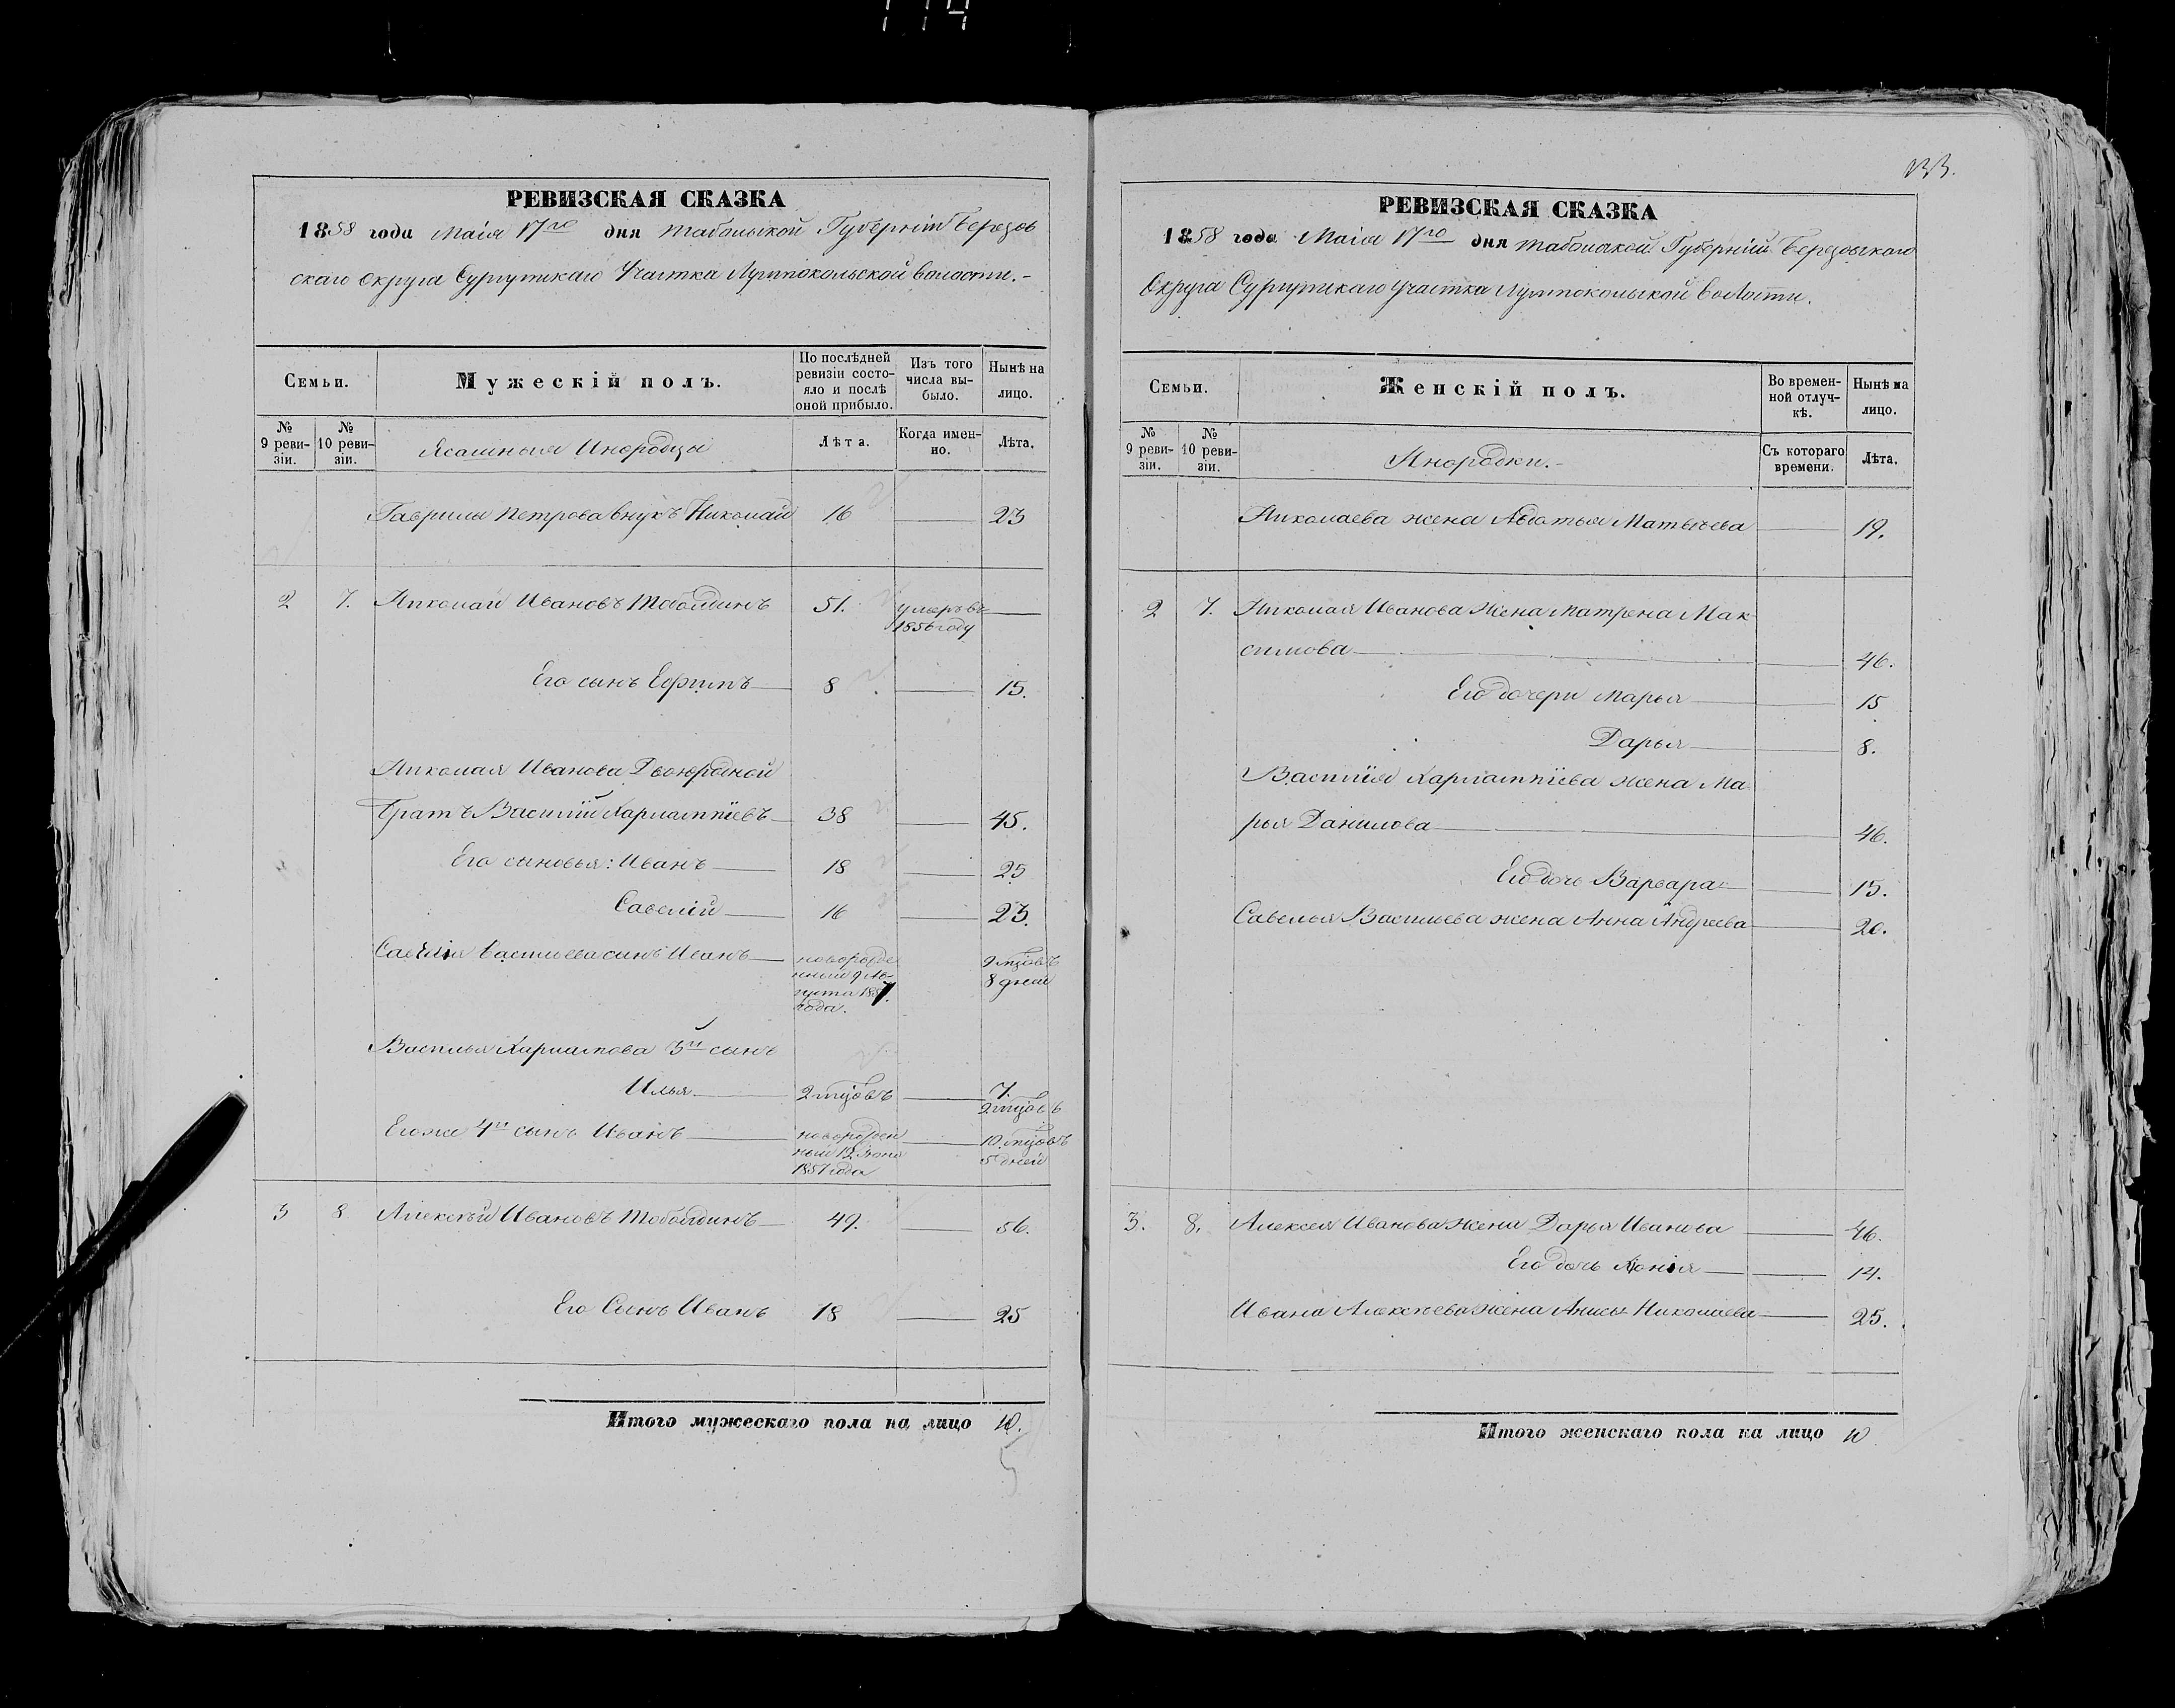 РЕВИЗСКАЯ СКАЗКА
1858 года Маія 17го дня Табольской Губерніи Березов
скаго округа Сургутскаго Участка Лумпокольской волости.-
Семьи.
Мужескій полъ.
По послѣдней ревизіи состояло и послѣ оной прибыло.
Изъ того числа выбыло.
Нынѣ на лицо.
№ 9 ревизіи.
№ 10 ревизіи.
Ясашныя Инородцы
Лѣта.
Когда именно.
Лѣта.
Гаврилы Петрова внукъ Николай 16 — 23
2 7. Николай Ивановъ Тоболдинъ 51. умеръ въ —
1856 году
Его сынъ Ефимъ — 8 — 15.
Николая Иванова Двоюродной
братъ Василій Харлампіевъ — 38 — 45.
Его сыновья: Иванъ — 18 — 25
Савелій — 16 — 23.
Савелія Васильева сынъ Иванъ — новорожде 9 мцовъ
нный 9 Ав- 8 дней
густа 1857
года.
Василья Харлампова 3й сынъ
Илья — 2 мцовъ — 7.
2 мцовъ
Его же 4й сынъ Иванъ — новорожден — 10 мцовъ
ный 12 Іюня 5 дней
1857 года
3 8 Алексѣй Ивановъ Тоболдинъ — 49. — 56.
Его Сынъ Иванъ 18 — 25
Итого мужескаго пола на лицо 10.
133.
РЕВИЗСКАЯ СКАЗКА
1858 года Маія 17го дня Табольской Губерніи Березовскаго
Округа Сургутскаго Участка Лумпокольской Волости.
Семьи.
Женскій полъ.
Во временной отлучкѣ.
Нынѣ на лицо.
№ 9 ревизіи.
№ 10 ревизіи.
Инородки.-
Съ котораго времени.
Лѣта.
Николаева жена Авдотья Матвѣева — 19.
2 7. Николая Иванова Жена Матрена Мак-
симова — — 46.
Его дочери Марья — — 15
Дарья — — 8.
Василія Харлампіева жена Ма-
рья Данилова — — 46.
Его дочь Варвара — — 15.
Савелья Васильева жена Анна Андреева — 20.
3. 8. Алексея Иванова жена Дарья Иванова — 46.
Его дочь — — 14.
Ивана Алексѣева жена Анисья Николаева — 25.
Итого женскаго пола на лицо 10